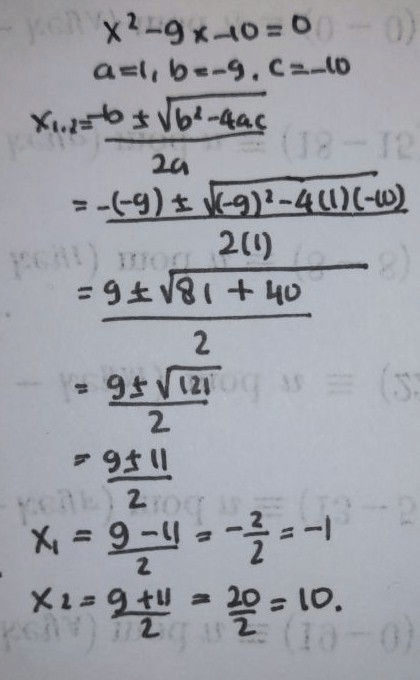 x² - 9x - 10 = 0
a = 1, b = -9, c = -10
x₁,₂ = (-b ± √(b² - 4ac)) / 2a
= (-(-9) ± √((-9)² - 4(1)(-10))) / 2(1)
= (9 ± √(81 + 40)) / 2
= (9 ± √121) / 2
= (9 ± 11) / 2
x₁ = (9 - 11) / 2 = -2/2 = -1
x₂ = (9 + 11) / 2 = 20/2 = 10.